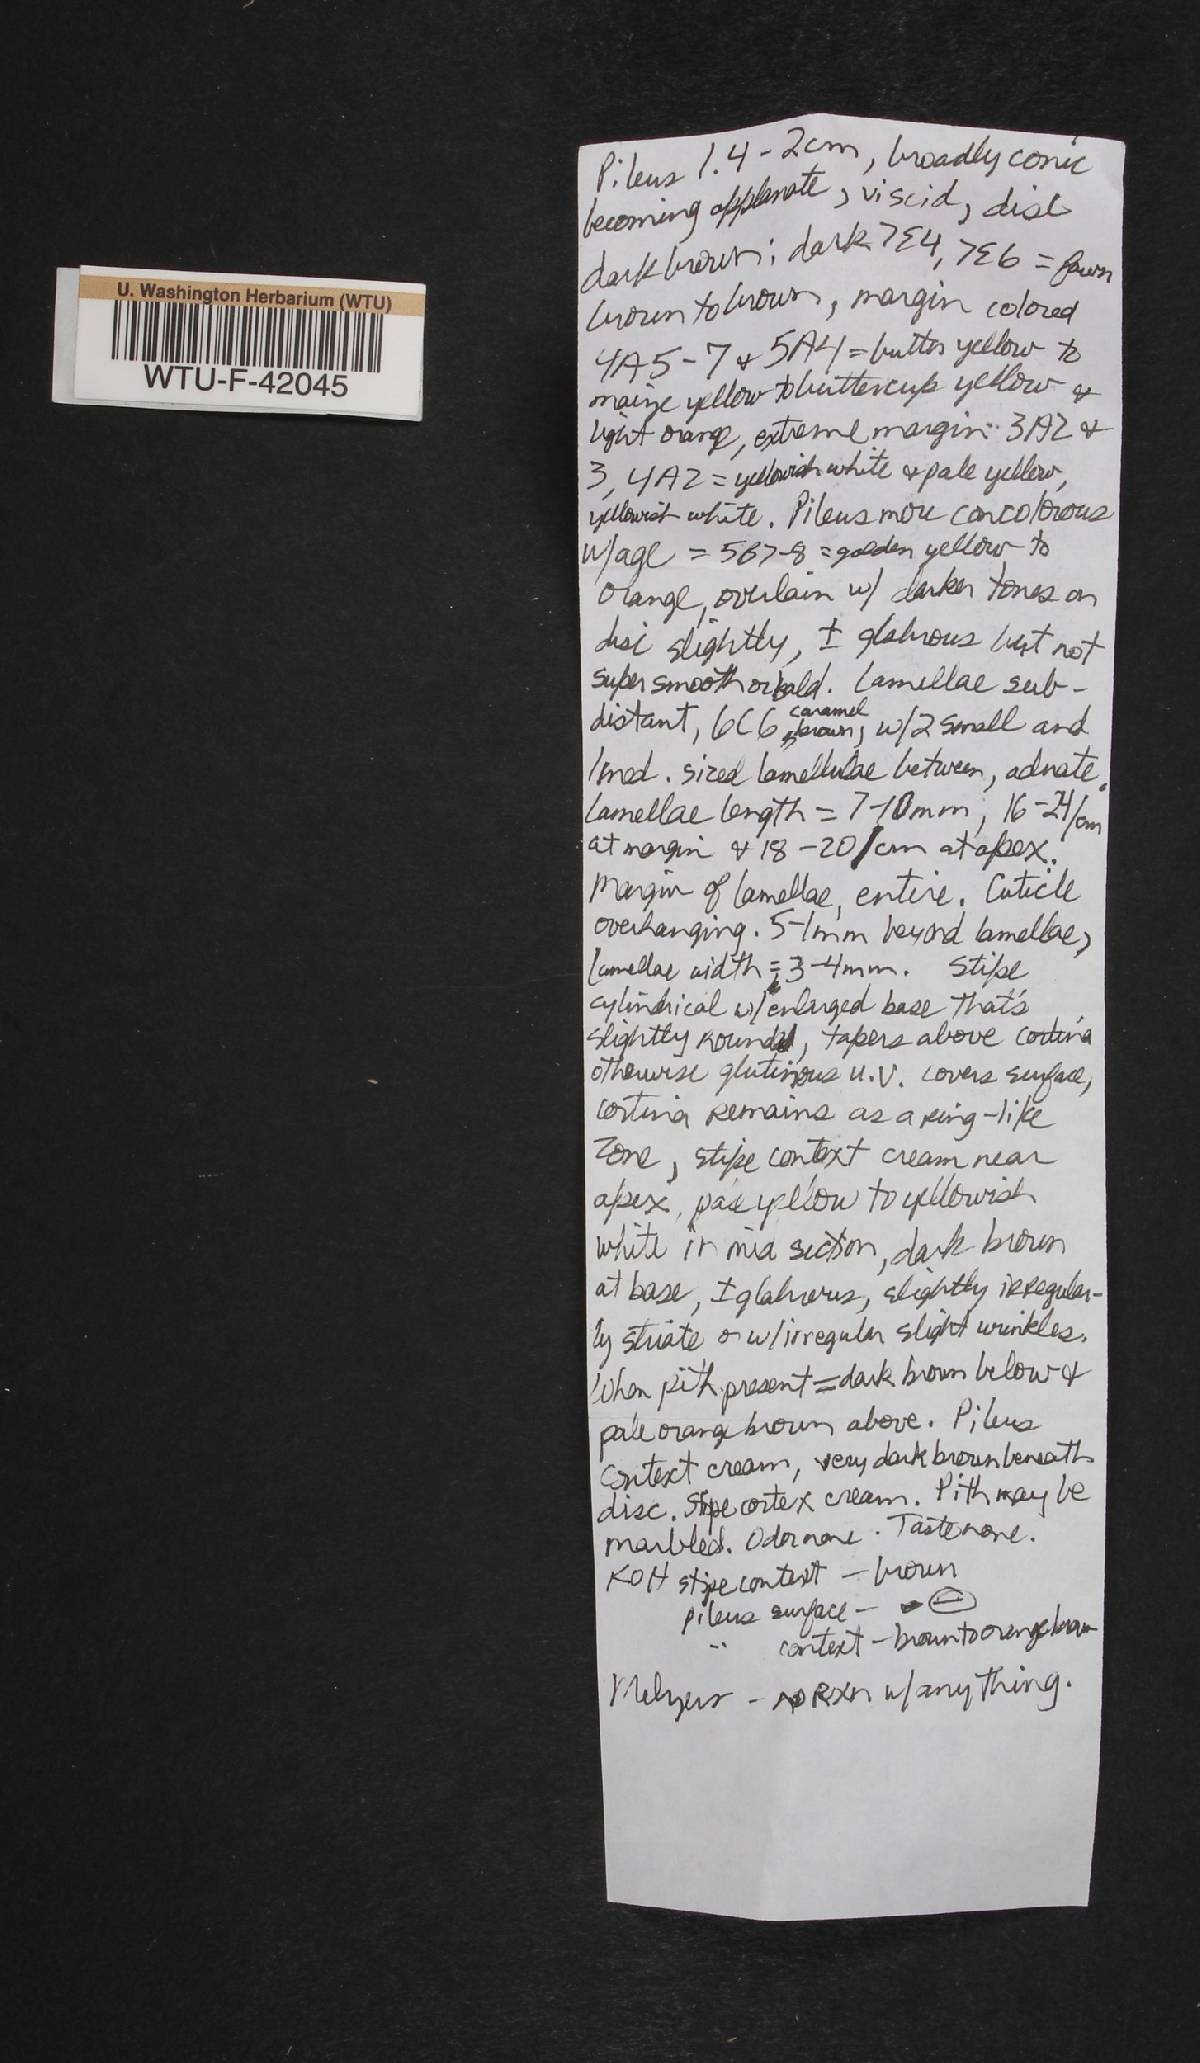 U. Washington Herbarium (WTU)
WTU-F-42045
Pileus 1.4-2cm, broadly conic
becoming applanate, viscid, disc
dark brown: dark 7E4, 7E6 = fawn
brown to brown, margin colored
4A5-7 & 5A4 = butter yellow to
maize yellow to buttercup yellow &
light orange, extreme margin: 3A2 &
3, 4A2 = yellowish white & pale yellow,
yellowish white. Pileus more concolorous
w/age = 5B7-8 = golden yellow to
orange, overlain w/ darker tones on
disc slightly, ± glabrous but not
super smooth or bald. Lamellae sub-
distant, 6C6 caramel brown, w/2 small and
1 med. sized lamellulae between, adnate.
Lamellae length = 7-10mm, 16-24/cm
at margin & 18-20/cm at apex.
Margin of lamellae, entire. Cuticle
overhanging .5-1mm beyond lamellae,
lamellae width = 3-4mm. Stipe
cylindrical w/enlarged base that's
slightly rounded, tapers above cortina
otherwise glutinous u.v. covers surface,
cortina remains as a ring-like
zone, stipe context cream near
apex, pale yellow to yellowish
white in mid section, dark brown
at base, ± glabrous, slightly irregular-
ly striate or w/irregular slight wrinkles.
When pith present = dark brown below &
pale orange brown above. Pileus
context cream, very dark brown beneath
disc. Stipe cortex cream. Pith may be
marbled. Odor none. Taste none.
KOH stipe context - brown
pileus surface - ⊖
" context - brown to orange brown
Melzers - no Rxn w/anything.